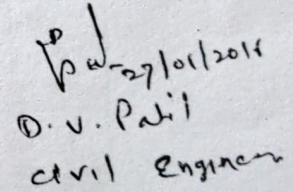 27/01/2018
D. V. Patil
Civil Engineer